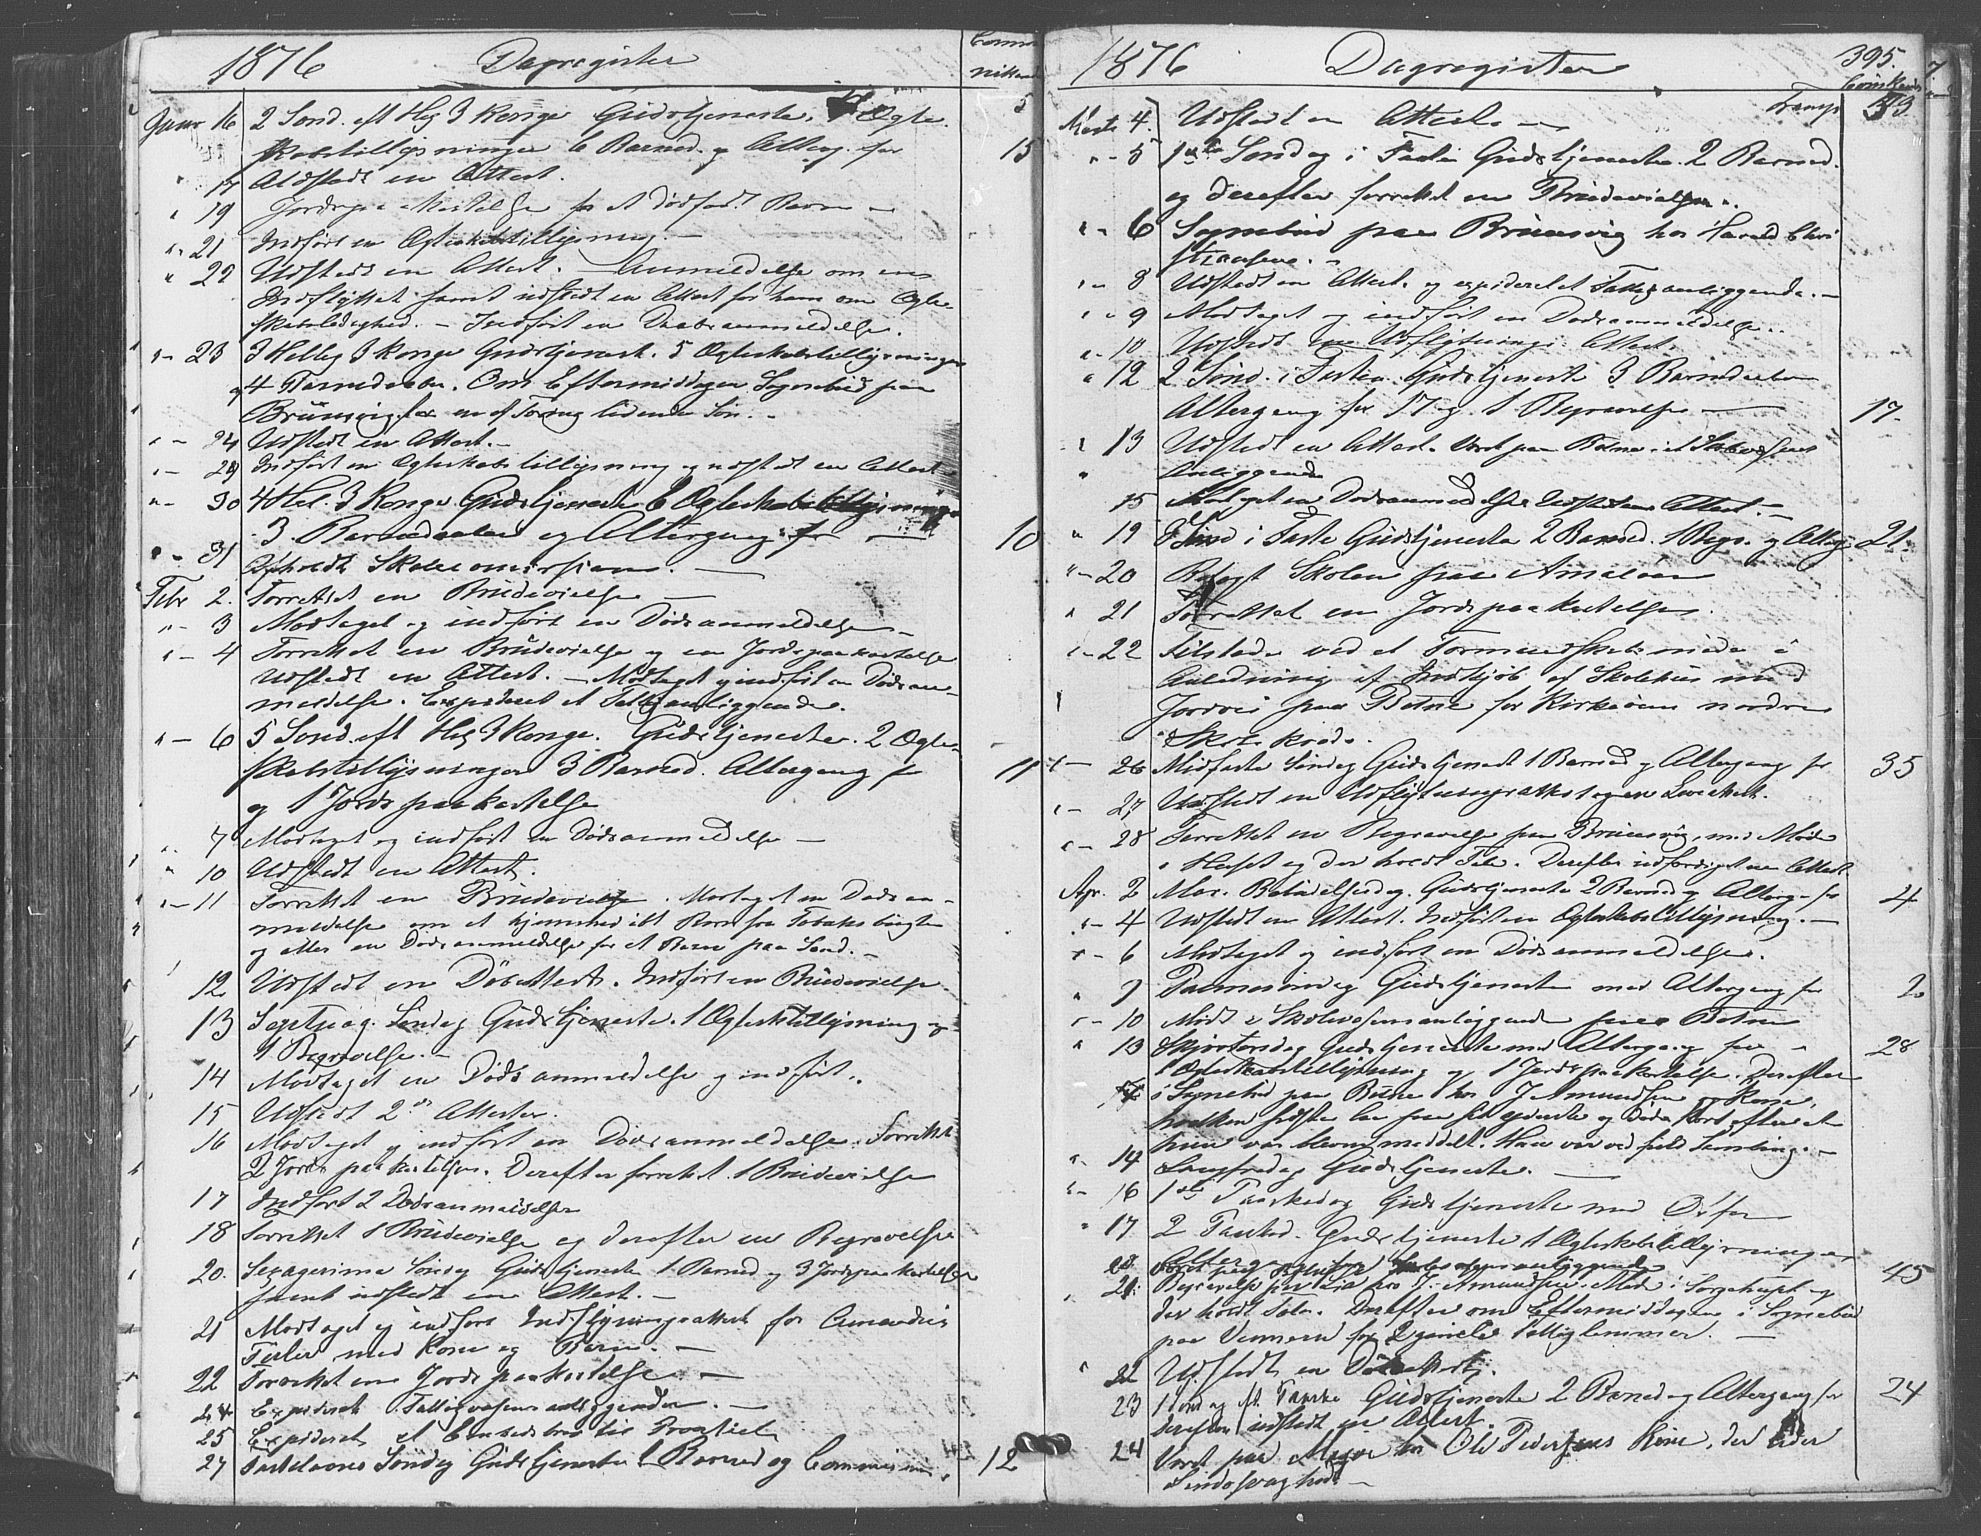 1876 Dagregister Commu
nikant
Janr 16 2 Sønd. eft Hlg 3 Konge Gudstjeneste. Ægte 5
skabstillysninger 6 Barned. og Alterg. for 15
17 Udstedt en Attest.
" 19 Jordspaakastelse for et dødfødt Barn –
" 21 Indført en Ægteskabstillysning. –
" 22 Udstedt en Attest. – Anmeldelse om en
Indflyttet samt udstedt en Attest for ham om Ægte-
skabsledighed. – Indført en Daabsanmeldelse.
" – 23 3 Hellig 3 Konge Gudstjenest. 5 Ægteskabstillysninger
og 4 Barnedaabe. Om Eftermiddagen Sognebud paa
Brunsvig for en af Tæring lidende Søn. –
" – 24 Udstedt en Attest. –
" – 29 Indført en Ægteskabstillysning og udstedt en Attest
" – 30 4 Hel. 3 Konge Gudstjeneste 6 Ægteskabstillysninger
3 Barnedaabe og Altergang for – 10
" – 31 Afholdt Skolecommission. –
Febr 2. Forrettet en Brudevielse –
" – 3 Modtaget og indført en Dødsanmeldelse –
" – 4 Forrettet en Brudevielse og en Jordspaakastelse
Udstedt en Attest. – Modtaget og indført en Dødsan-
meldelse. Expederet et Fattiganliggende.
" – 6 5 Sønd. eft Hlg 3 Konge. Gudstjeneste. 2 Ægte-
skabstillysninger 3 Barned. Altergang for 11
og 1 Jordspaakastelse
" 7 Modtaget og indført en Dødsanmeldelse –
" 10 Udstedt en Attest.
" – 11 Forrettet en Brudevielse. Modtaget en Dødsan-
meldelse om et hjemmedøbt Barn fra
og atter en Dødsanmeldelse for et Barn paa Sand. –
12 Udstedt en Døbeattest. Indført en Brudevielse
13 Septuag. Søndag Gudstjeneste. 1 Ægteskstillysning og
1 Begravelse. –
14 Modtaget en Dødsanmeldelse og indført.
15 Udstedt 2de Attester.
16 Modtaget og indført en Dødsanmeldelse. Forrettet
2 Jordspaakastelser. Derefter forrettet 1 Brudevielse
17 Indført 2 Dødsanmeldelser
18 Forrettet 1 Brudevielse og derefter en Begravelse
20. Sexagesima Søndag Gudstjeneste 1 Barned og 3 Jordspaakastelser
samt udstedt en Attest. –
21 Modtaget og indført Indflytningsattest for
med Kone og Barn. –
22 Forrettet en Jordspaakastelse. –
24 Expederet Fattigvæsensanliggender. –
25 Expederet et Embedsbrev til Provstiet
27 Fastelavns Søndag Gudstjeneste 1 Barned og Communion. 12
1876 Dagregister 395.
Comunikant
Transp 53
Marts 4. Udstedt en Attest. –
" – 5 1ste Søndag i Faste Gudstjeneste. 2 Barned.
og derefter forrettet en Brudevielse.
" – 6 Sognebud paa Brunsvig hos Harald Chri
stiansen. –
" – 8 Udstedt en Attest. og expederet et Fattiganliggende. –
" " 9 Modtaget og indført en Dødsanmeldelse.
" – 10 Udstedt en Udflytnings Attest.
" 12 2 Sønd. i Fasten Gudstjeneste 3 Barnedaabe
Altergang for 17 og 1 Begravelse – 17.
" 13 Udstedt en Attest. Været paa Botne i et Skolevæsens
" Anliggende
15 Modtaget en Dødsanmeldelse Udstedt en Attest. –
" 19 3 Sønd i Faste Gudstjeneste 2 Barned. 1 Begr. og Alterg 21.
" – 20 Besøgt Skolen paa
" 21 Forrettet en Jordspaakastelse.
" – 22 Tilstede ved et Formandskabsmøde i
Anledning af Indkjøb af Skolehus med
Jordvei paa Botne for Kirkeøens nordre
Skolekreds.
" – 26 Midfaste Søndag Gudstjenest 1 Barned og Altergang for 35
" – 27 Udstedt en Udflytningsattest og en Døbeattest.
" – 28 Forrettet en Begravelse paa Brunsvig, med Møde
i Huset og der holdt Tale. Derefter udfærdiget en Attest
Apr. 2 Mar. Bebudelsesdag. Gudstjeneste 2 Barned og Alterg. for 4
" – 4 Udstedt en Attest. Indført en Ægteskabstillysning. –
" – 6 Modtaget og indført en Dødsanmeldelse.
" 9 Palmesøndag Gudstjeneste med Altergang for 2
" – 10 Mødt i Skolevæsensanliggende paa Botne
" 13 Skjærtorsdag Gudstjeneste med Altergang for – 28
1 Ægteskabstillysning og 1 Jordspaakastelse. Derefter
i Sognebud paa hos J Amundsen og Kone,
hvilken sidste laa paa sit yderste og døde strax efter at
hun var bleven meddelt. Hun var ved fuld Samling. –
" – 14 Langfredag Gudstjeneste. –
" – 16 1ste Paaskedag Gudstjeneste med Offer
" 17 2 Paasked. Gudstjeneste 1 Ægteskabstillysning og
20 Været paa Botne for Skolevæsensanliggende 45
21. Begravelse paa hos J. Amundsen. Mød i Sørgehuset og
der holdt Tale. Derefter om Eftermiddagen i Sognebud
paa for 2 gamle Fattiglemmer. –
" 22 Udstedt en Døbeattest.
23 1 Søndag eft. Paaske Gudstjeneste 2 Barned og Altergang for 24
derefter udstedt en Attest.
24 Været paa hos Ole Pedersens Kone, der lider
Sindssvaghed. –